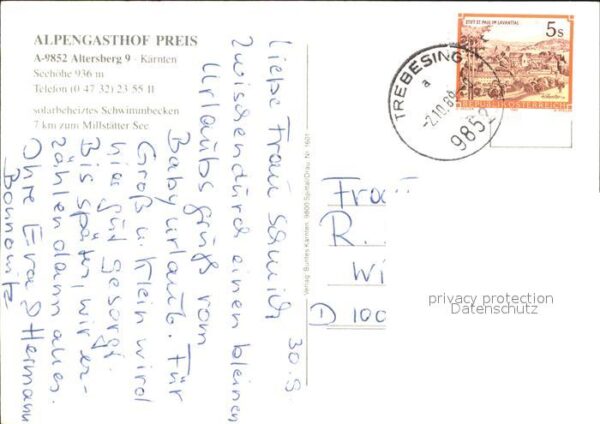 ALPENGASTHOF PREIS
A-9852 Altersberg 9 - Kärnten
Seehöhe 936 m
Telefon (0 47 32) 23 55 11
solarbeheiztes Schwimmbecken
7 km zum Millstätter See
30.9.
Liebe Frau Schmidt
Zwischendurch einen kleinen
Urlaubsgruß vom
Babyurlaub. Für
Groß u. Klein wird
hier für gesorgt.
Bis später, wir er-
zählen dann alles.
Ihre Eva & Hermann
Verlag Buntes Kärnten, 9800 Spittal/Drau, Nr. 1601
STIFT ST. PAUL IM LAVANTTAL
5 s
REPUBLIK ÖSTERREICH
TREBESING
a
-2.10.89
9852
Frau
R.
Wi
D 100
privacy protection
Datenschutz